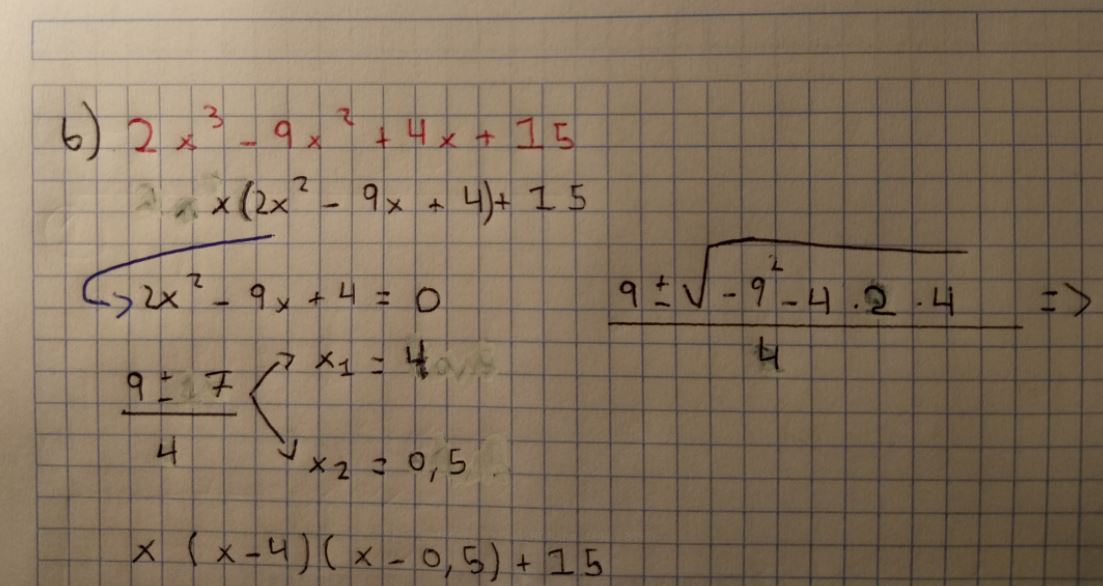 b) 2x³ - 9x² + 4x + 15
x(2x² - 9x + 4) + 15
2x² - 9x + 4 = 0
(9 ± √(-9² - 4 · 2 · 4)) / 4 =>
(9 ± 7) / 4
x₁ = 4
x₂ = 0,5
x (x - 4)(x - 0,5) + 15